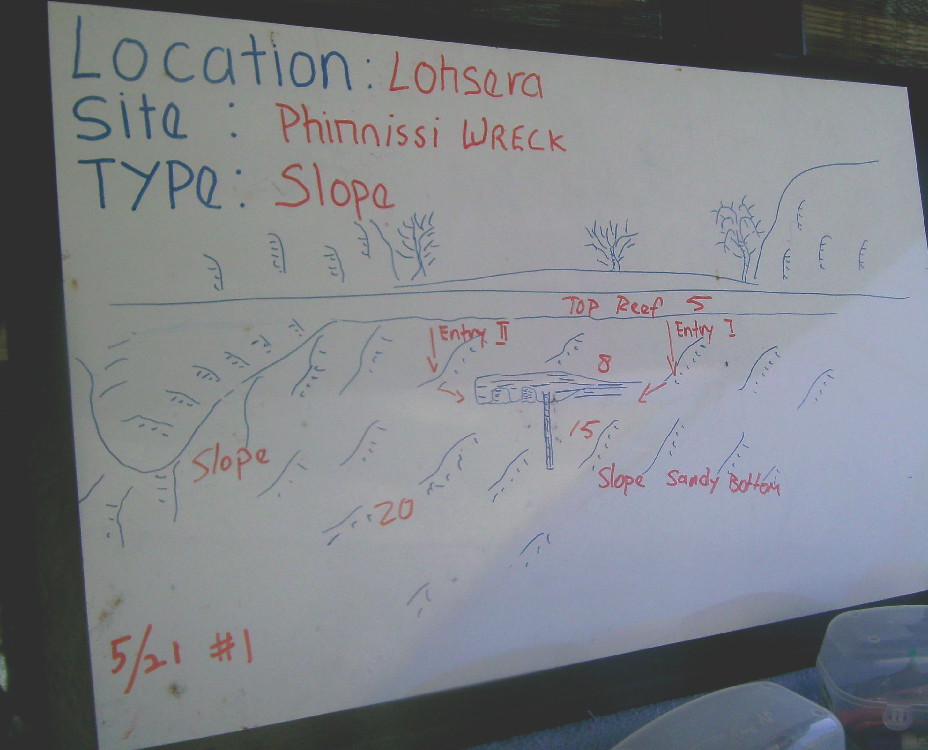 Location: Lohsera
Site : Phinnissi WRECK
TYPe: Slope
Top Reef 5
Entry II
Entry I
8
15
Slope
Slope Sandy Bottom
20
5/21 #1